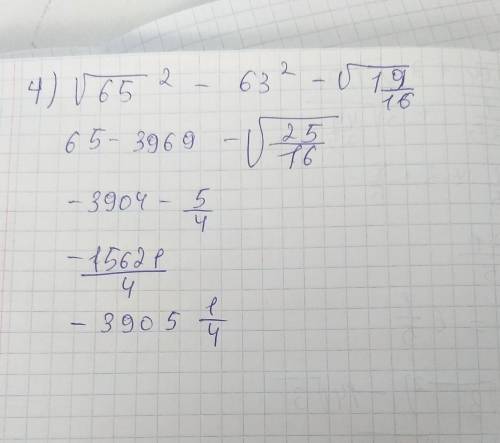 4) √65² - 63² - √1 9/16
65 - 3969 - √25/16
-3904 - 5/4
-15621/4
-3905 1/4